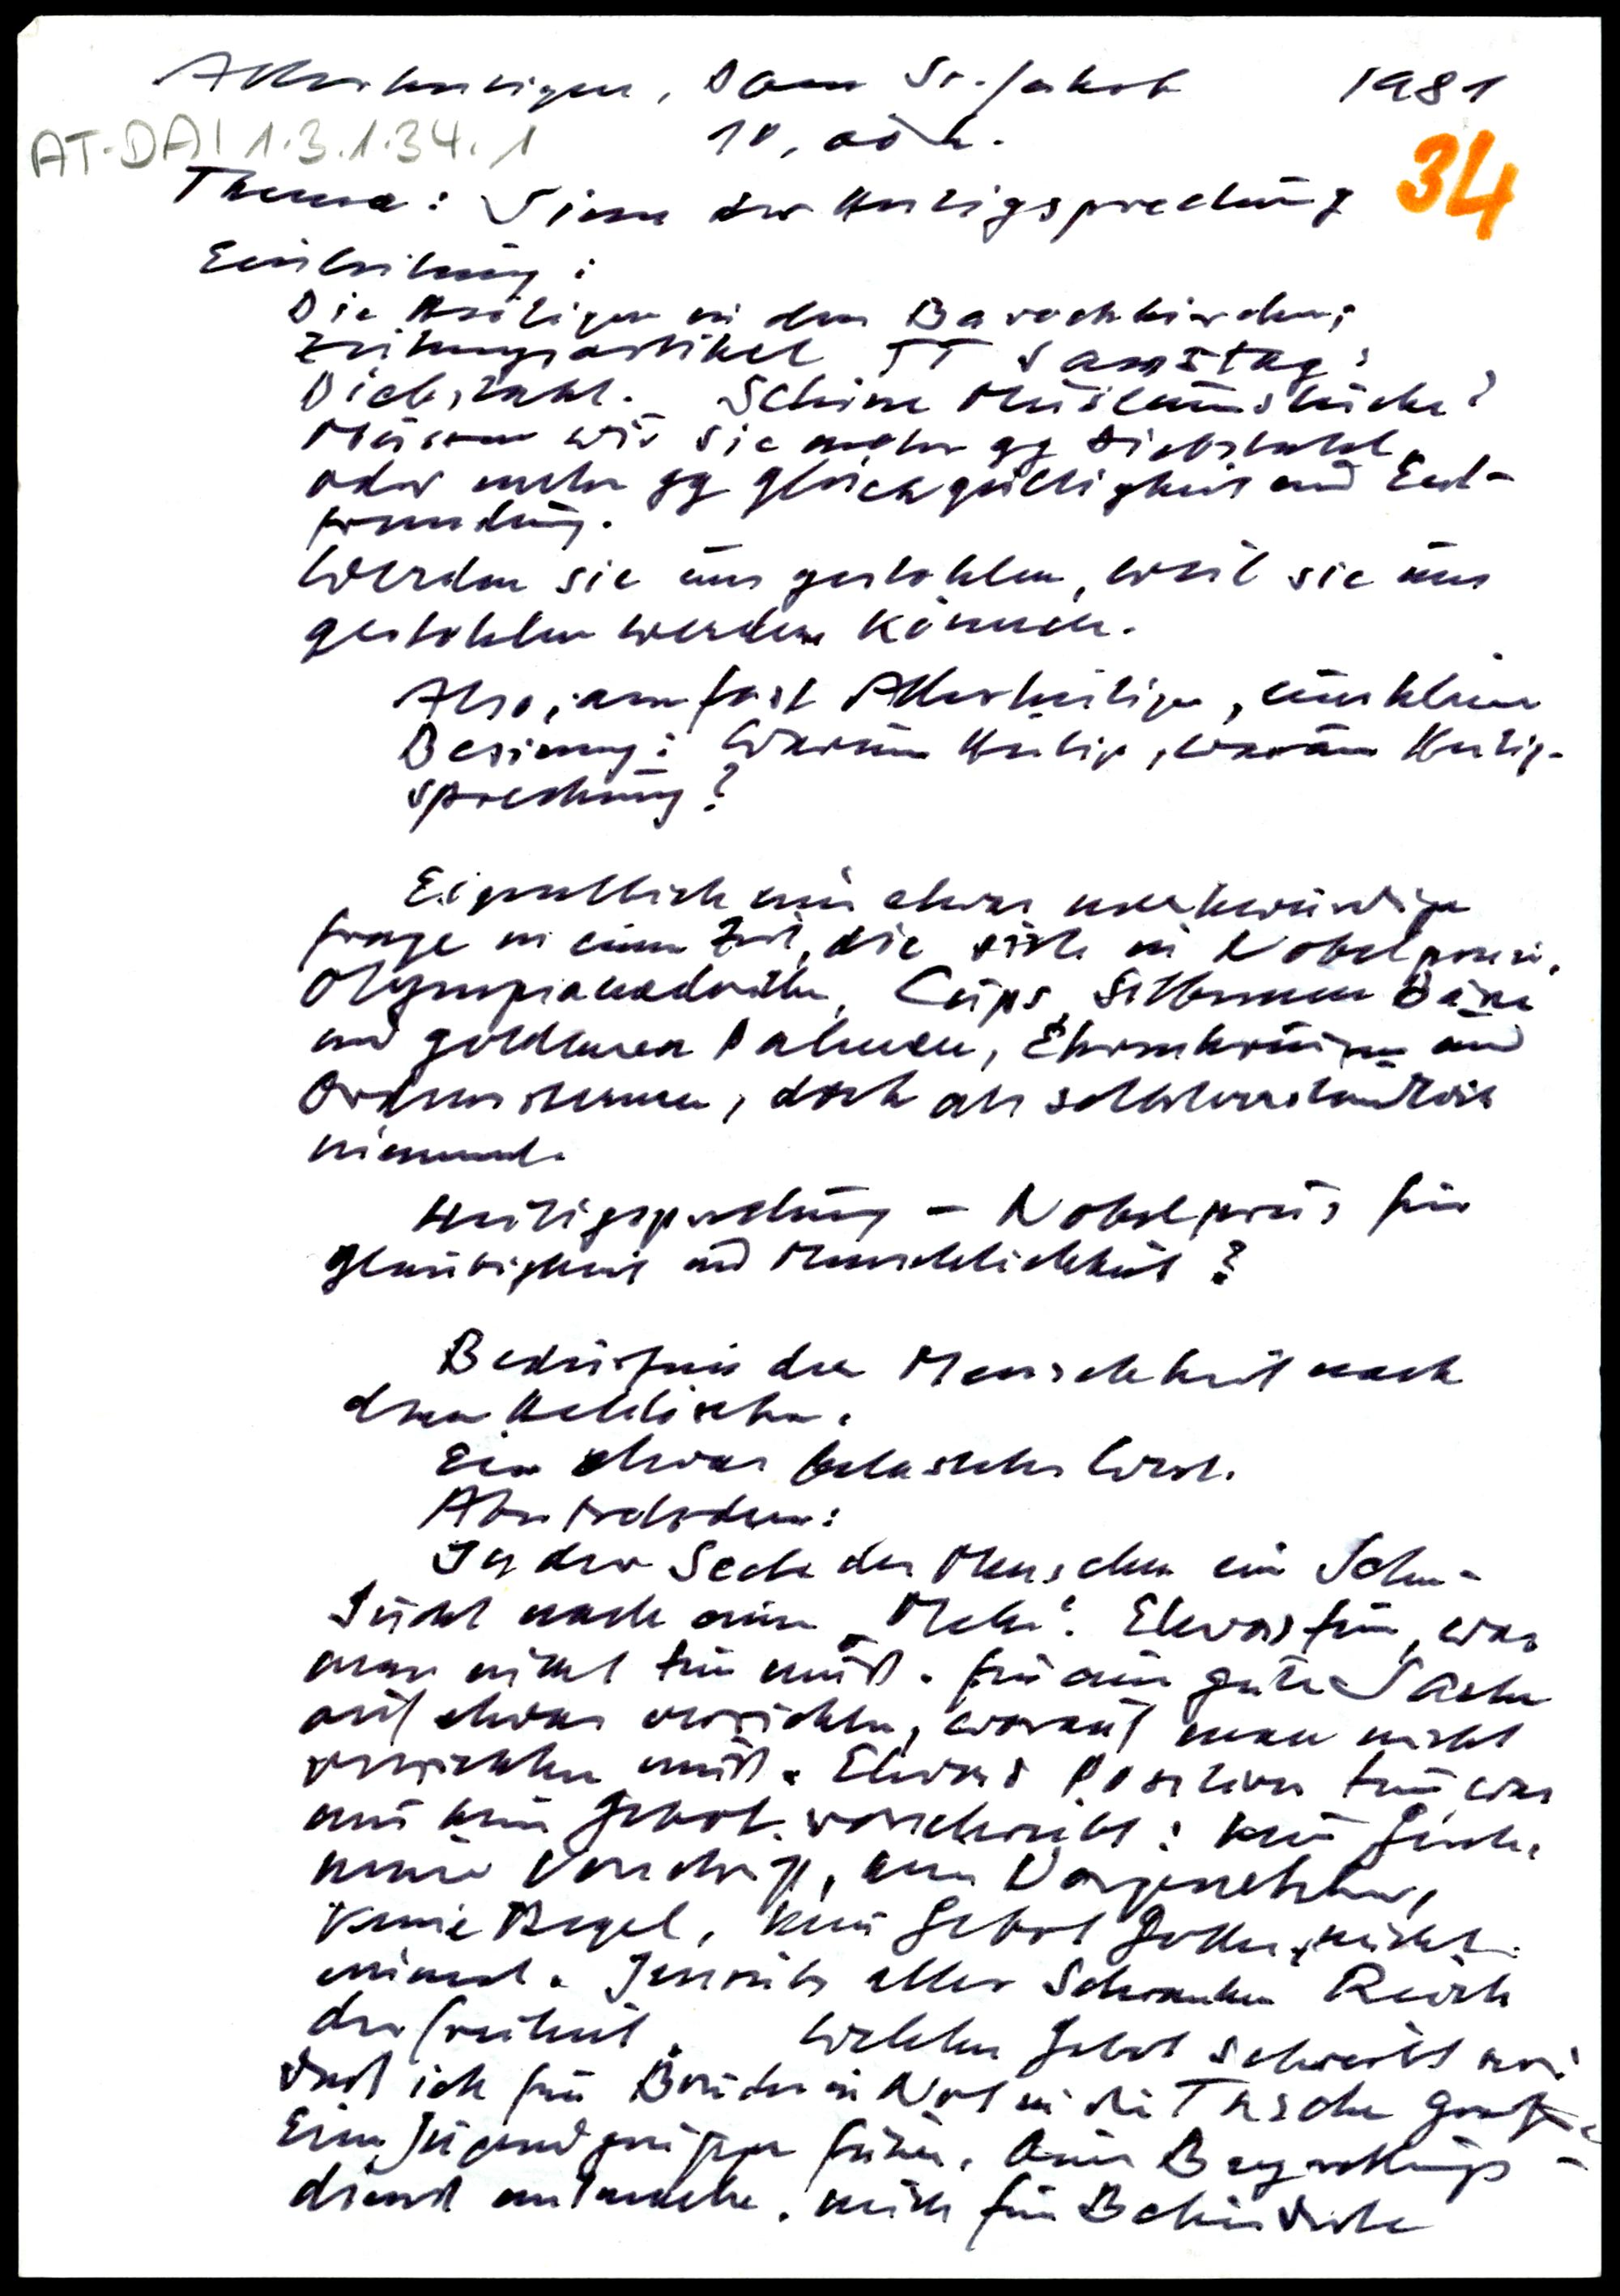 Allerheiligen, Dom St. Jakob 1981
AT-DAI 1.3.1.34.1 10,00 h.
34
Thema: Sinn der Heiligsprechung
Einleitung:
Die Heiligen in den Barockkirchen;
Zeitungsartikel TT Samstag:
Diebstahl. Schöne Museumsstücke?
Müssen wir sie mehr gg Diebstahl
oder mehr gg Gleichgültigkeit und Ent-
fremdung.
Werden sie uns gestohlen, weil sie uns
gestohlen werden können.
Also, am Fest Allerheiligen, eine kleine
Besinnung: Warum Heilige, warum Heilig-
sprechung?
Eigentlich eine etwas merkwürdige
Frage in einer Zeit, die sich in Nobelpreise,
Olympiamedaillen, Cups, Silbernen Bären
und goldenen Palmen, Ehrenkränzen und
Ordenssternen, doch als selbstverständlich
nimmt.
Heiligsprechung - Nobelpreis für
Gläubigkeit und Menschlichkeit?
Bedürfnis der Menschheit nach
dem Heldischen.
Ein etwas belastetes Wort.
Aber trotzdem:
In der Seele des Menschen eine Sehn-
sucht nach einem "Mehr". Etwas tun, was
man nicht tun muß. Für eine gute Sache
auf etwas verzichten, worauf man nicht
verzichten muß. Etwas Positives tun, was
mir kein Gebot vorschreibt: Kein Gesetz,
keine Vorschrift, kein Vorgesetzter,
keine Regel, kein Gebot Gottes nicht
einmal. Jenseits aller Schranken Reich
der Freiheit. Welches Gebot schreibt vor,
daß ich für Bruder in Not in die Tasche greife
Eine Jugendgruppe führe, einen Begleitungs-
dienst mitmache, mich für Behinderte